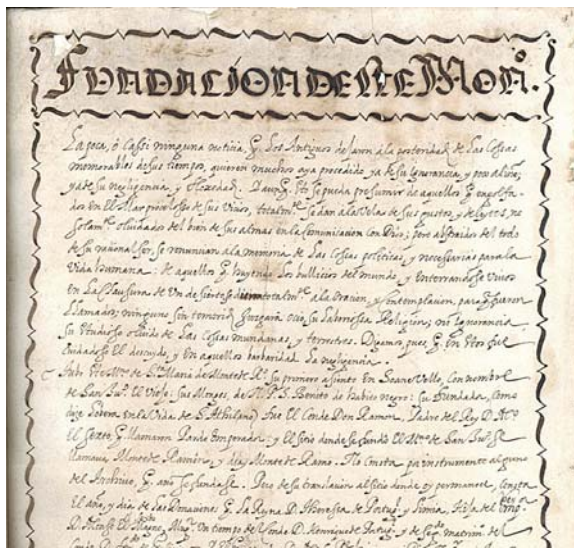 FUNDACION DESTE MOn.º
La poca, ó cassi ninguna noticia, q. los Antiguos dejaron á la posteridad de las cossas
memorables de sus tiempos, quieren muchos aya procedido, ya de su ignorancia, y poco aliño;
ya de su negligencia, y flogedad. Y aunq. esto se pueda presumir de aquellos q. engolfa-
dos en El Mar proceloso de sus Vicios, totalm.te se dan a la Vela de sus gustos, y deleytes, no
solam.te olvidados del bien de sus almas en la Comunicacion con Dios; pero abstraidos del todo
de su racional ser, se renuncian a la memoria de las cossas politicas, y necessarias para la
Vida humana; de aquellos q. huyendo los bullicios del mundo, y enterrandose Vivos
en la Clausura de Un desierto totalm.te a la Oracion, y Contemplacion, para q. fueron
llamados; ninguno sin temeridad Juzgará ocio, su laboriossa Religion; ni ignorancia
su studioso olvido de las cossas mundanas, y terrestres. Digamos, pues, q. en estos fue
Cuidadoso El descuido, y en aquellos barbaridad la negligencia.
Tubo este M.rio de S.ta Maria de Montede R.º su primero asiento en Seoane Vello, con nombre
de San Ju.º El Viejo: sus Monges, de N. P. S. Benito de habito negro: su fundador, como
dije en la Vida de S. fue El Conde Don Ramon, Padre del Rey D. Al.º
El Sexto, q. llamaron Emperador: y El sitio donde se fundó El M.rio de San Ju.º se
llamava Monte de Ramiro, y oy Monte de Ramo. No Consta por instrumento alguno
del Archivo, q. año se fundase. Pero de su translacion al sitio donde oy permanece, consta
El año, y dia de las Donaciones q. la Reyna D. Theressa de Portug.l y Limia, Hija del Emp.or
D. Alonso El Magno, Mug.r Un tiempo del Conde D. Henrique de Portug.l y de Seg.do matrim.º del
Conde D.